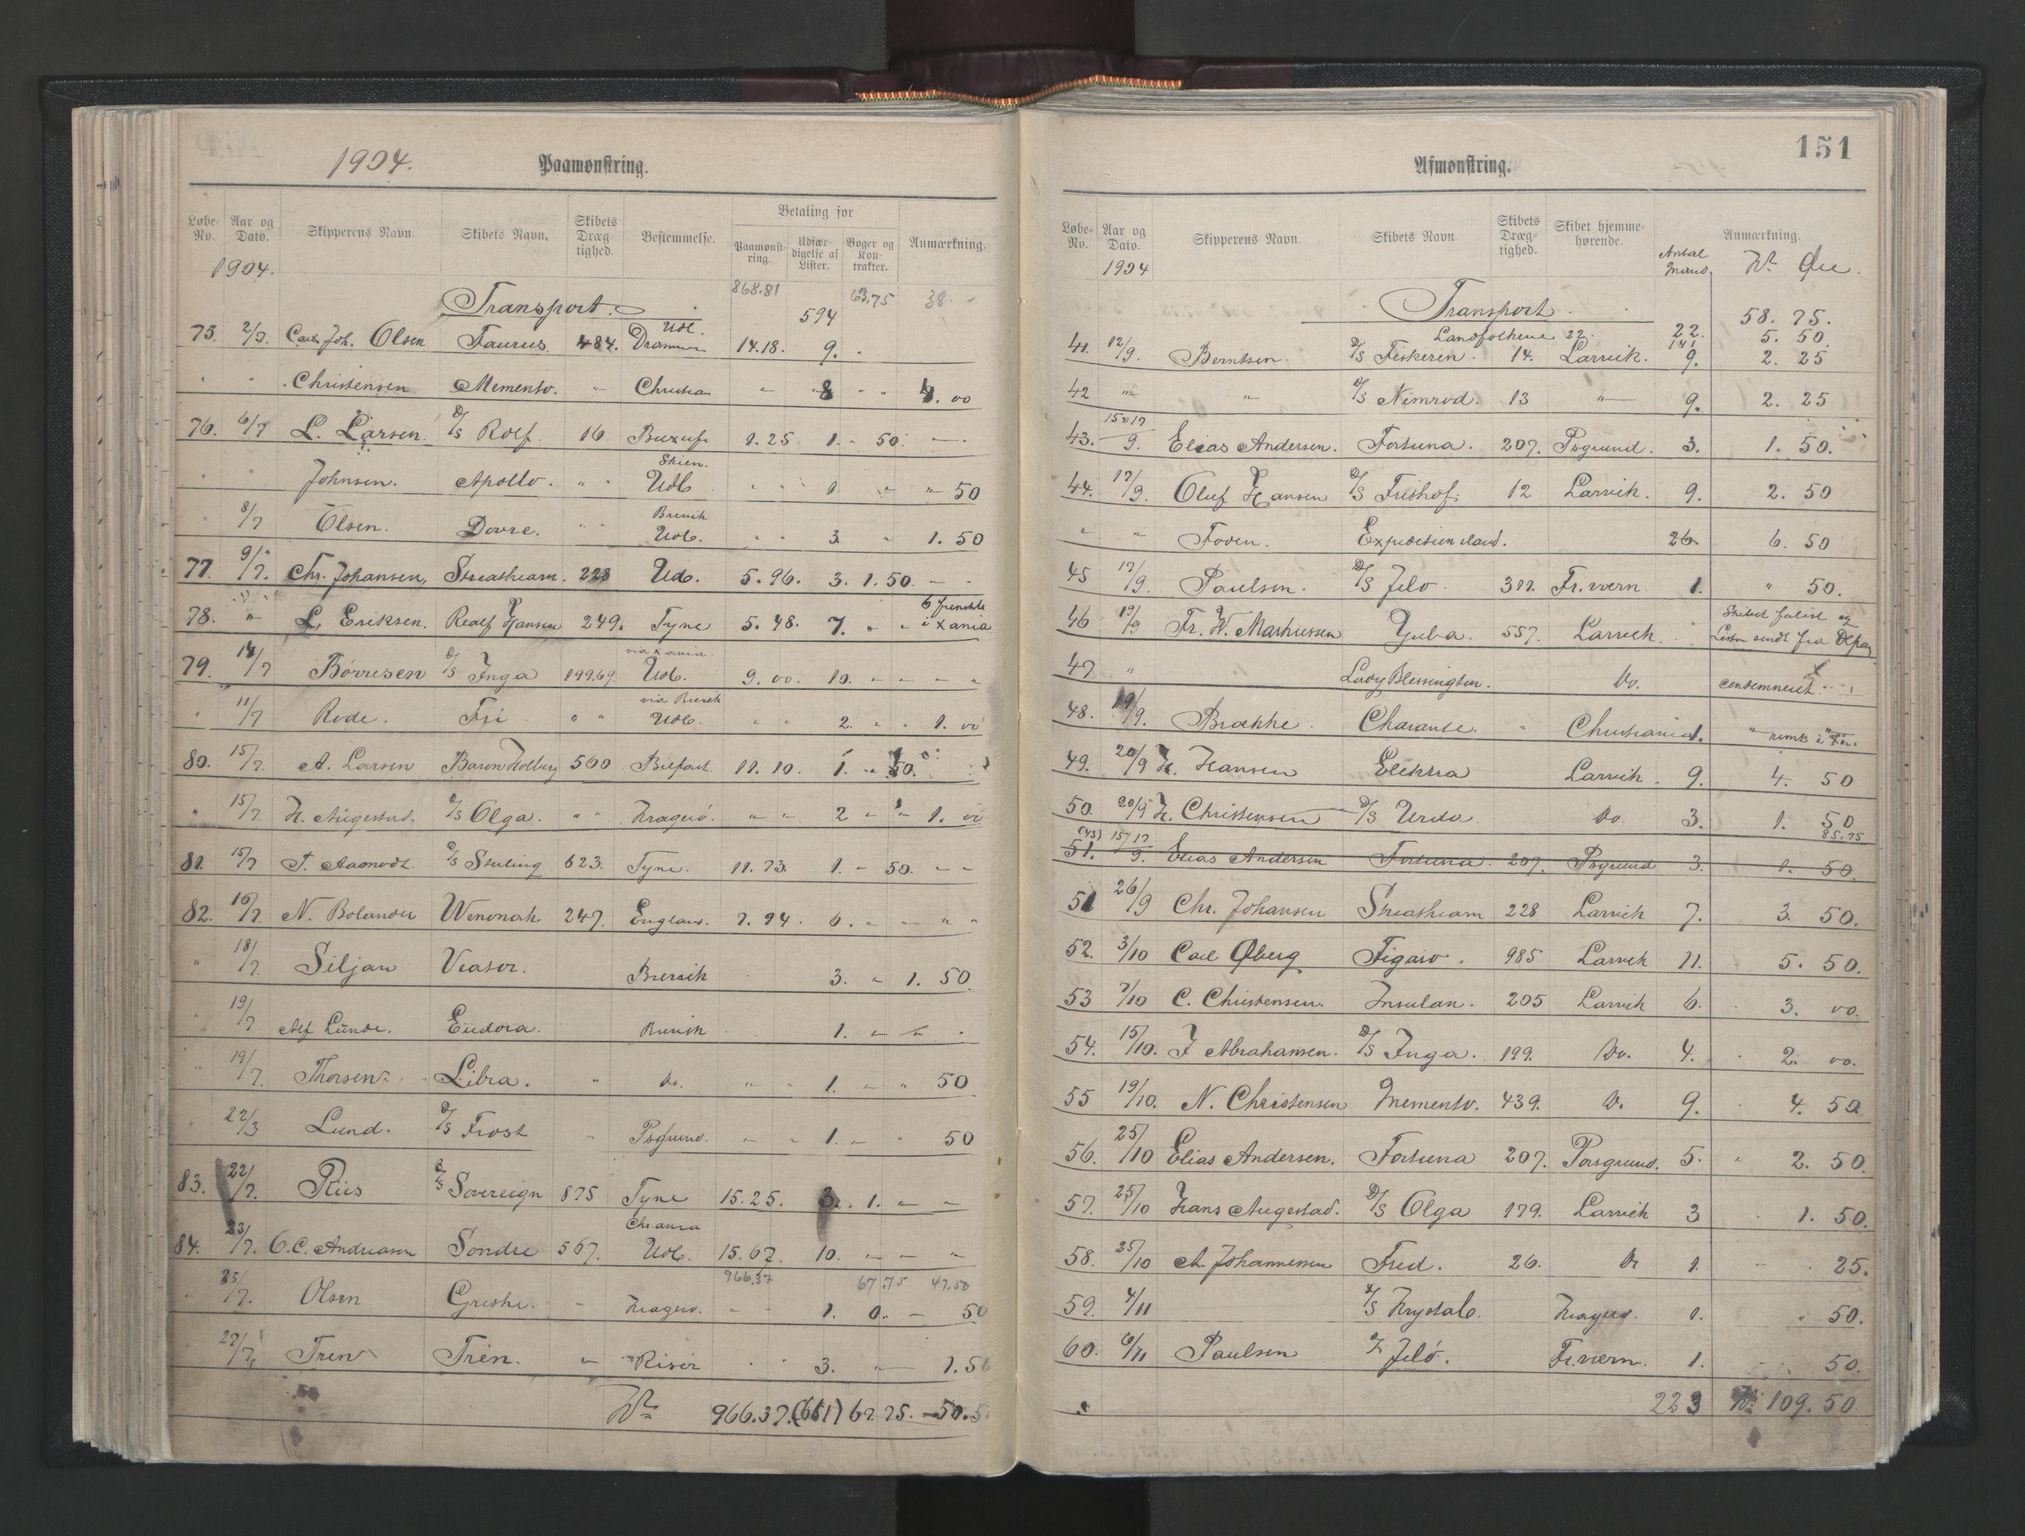 1904. Paamønstring.
Løbe-No. Aar og Dato. Skipperens Navn. Skibets Navn. Skibets Drægtighed. Bestemmelse. Betaling for Paamønstring. Udfærdigelse af Lister. Bøger og Kontrakter. Anmærkning.
1904.
868.81 63.75 38
Transport. 594
75. 2/7 Carl Joh. Olsen Taurus 484. Drammen Udl. 14.18. 9.
" " Christensen Memento. " Christian " " 8 " " 4.00
76. 6/7 L. Larsen D/S Rolf. 16 1.25 1. 50.
" " Johnsen. Apollo. " " Skien. Udl. 1 " " 50
" 8/7 Olsen. Dovre. " " Brevik Udl. " " 3. " 1.50
77. 9/7. Chr. Johansen, Streatheam. 228 Udl. 5.96. 3. 1.50.
78. " L. Eriksen. Roalf Hansen 249. Tyne 5.48. 7. " " 6 i Xania
79. 14/7 Børresen D/S Inga 199.69 via Xania. Udl. 9.00. 10.
" 11/7 Rode. Fri " " via Brevik Udl. " " 2. " " 1.00
80. 15/7. A. Larsen Baron Holberg 560 Belfast 11.10. 1. " 50.
" 15/7. H. Augestad. D/S Olga. " " Kragerø. " " 2 " " 1.00
81. 15/7 T. Aamodt D/S Sterling 623. Tyne. 11.73. 1. 50.
82. 16/7 N. Bolander Wenonah. 247. England. 7.94. 6.
" 18/7. Siljan Viator. Brevik 3. " 1.50.
" 19/7 Alf Lunde. Eudora. Brevik 1.
" 19/7. Thorsen. Libra. " Do. " " 1. " " 50
" 22/3 Lund. D/S Frost " Psgrund. " " 1. 50
83. 22/7. Riis D/S Sovereign 875 Tyne 15.25. 3. 1.
84. 23/7. O.C. Andreasen Sondre 567. Chrania Udl. 15.67 10.
966.37 67.75 47.50
" 25/7. Olsen Greshe. " Kragerø. " " 1. 0. 50
27/7. Tren Trén. " Risör 3. " 1.50
Kr 966.37. (611) 67.75. 50.5
151
Afmønstring.
Løbe-No. Aar og Dato. Skipperens Navn. Skibets Navn. Skibets Drægtighed. Skibet hjemmehørende. Antal Mand. Anmærkning. Kr Øre.
1904
Transport 58.75.
Landfolkene 22. 22. 5.50.
141
41. 12/9. Berntsen D/S Fiskeren. 14. Larvik. 9. 2.25
42 " " D/S Nimrod. 13 " 9. 2.25
43. 15&17 9. Elias Andersen. Fortuna. 207. Psgrund. 3. 1.50.
44. 17/9. Oluf Hansen D/S Frithof. 12 Larvik. 9. 2.50
" " Foden. Expedition 26. 6.50
45 17/9. Paulsen. D/S Jelø. 311. Fr.værn. 1. " 50.
46 19/9 Fr. W. Markussen Yuba. 557. Larvik. Skibet forlist og Listen sendt fra
47 " Lady Blessington. Do. Condemneret
48. 19/9. Brække. Charante. " Christiania. 1. "
49. 20/9 H. Hansen Elektra Larvik. 9. 4.50
50. 20/9 H. Christensen D/S Urda. Do 3. 1.50
85.75
(43) 51. 15/17 9. Elias Andersen Fortuna. 207. Psgrund 3. 1.50.
51 26/9 Chr. Johansen Streatheam 228 Larvik 7. 3.50.
52. 3/10 Carl Øberg Figaro. 985 Larvik 11. 5.50.
53 7/10 C. Christensen. Insulan. 205 Larvik 6. 3.00.
54. 15/10. J Abrahamsen. D/S Inga. 199. Do. 4. 2.00.
55 19/10. N. Christensen Memento. 439. Do. 9. 4.50
56. 25/10 Elias Andersen. Fortuna 207. Porsgrund. 5. " 2.50.
57. 25/10 Hans Augestad. D/S Olga 179. Larvik 3 1.50.
58. 25/10 A. Johannessen Fred. 26. Do 1. 25.
59. 4/11 D/S Krystal. Kragerø. 1. 50.
60. 6/11 Paulsen D/S Jelö. Fr.værn. 1. 50.
223 Kr. 109.50